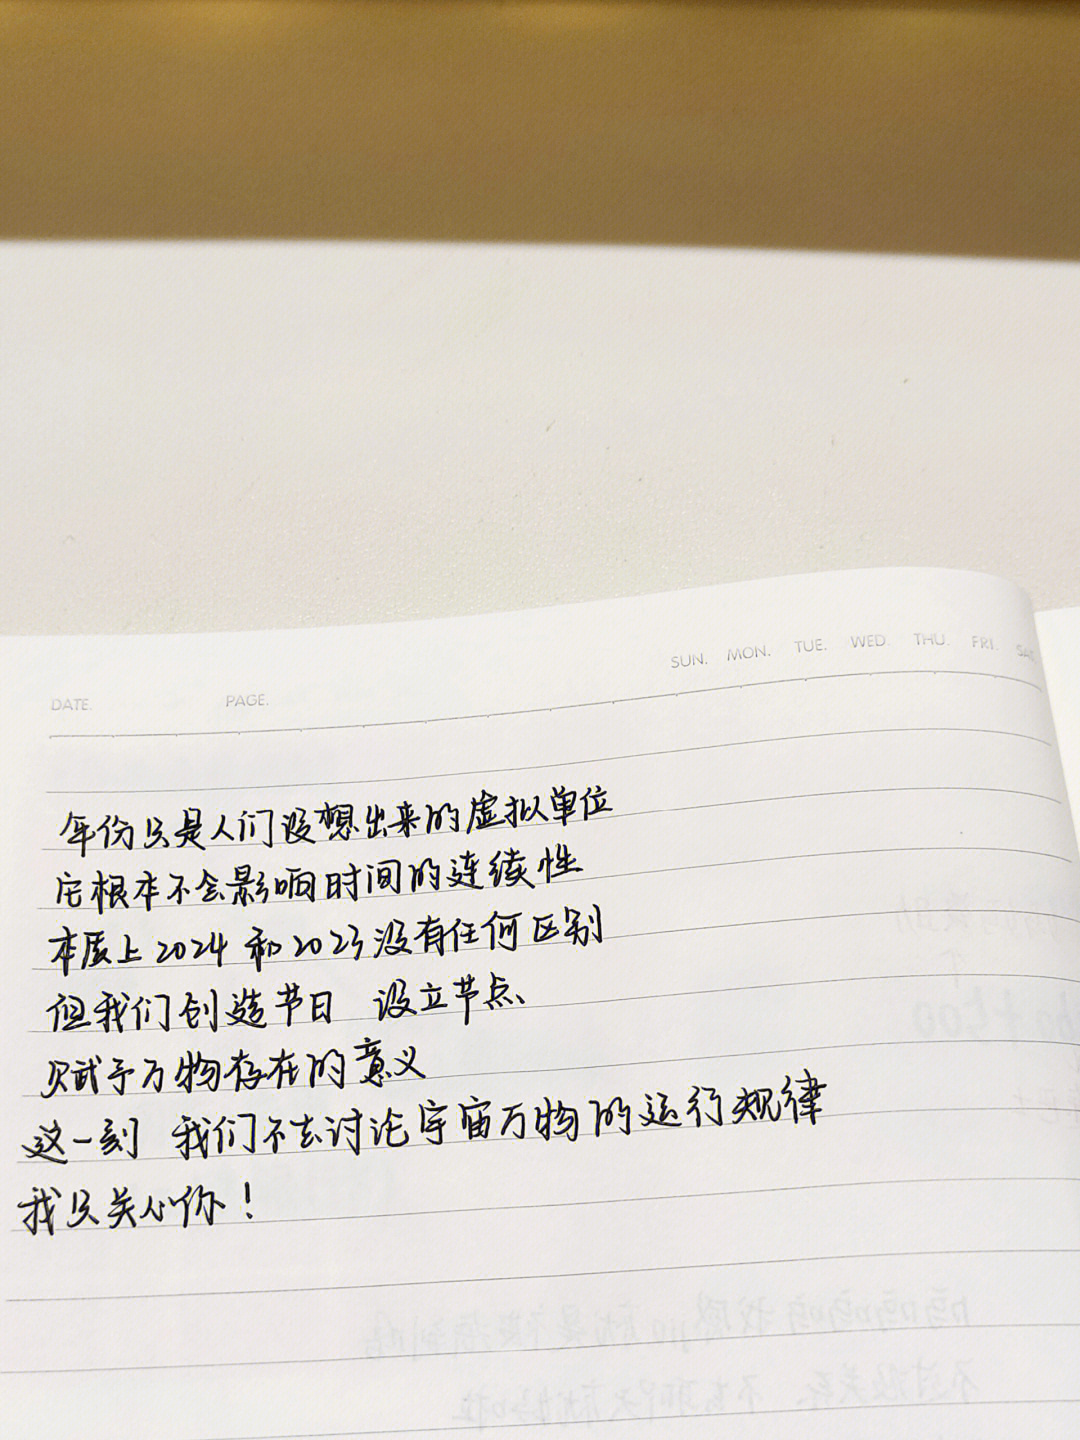 SUN. MON. TUE. WED. THU. FRI. SAT.
DATE. PAGE.
年份只是人们设想出来的虚拟单位
它根本不会影响时间的连续性
本质上2024和2023没有任何区别
但我们创造节日 设立节点
赋予万物存在的意义
这一刻 我们不去讨论宇宙万物的运行规律
我只关心你！